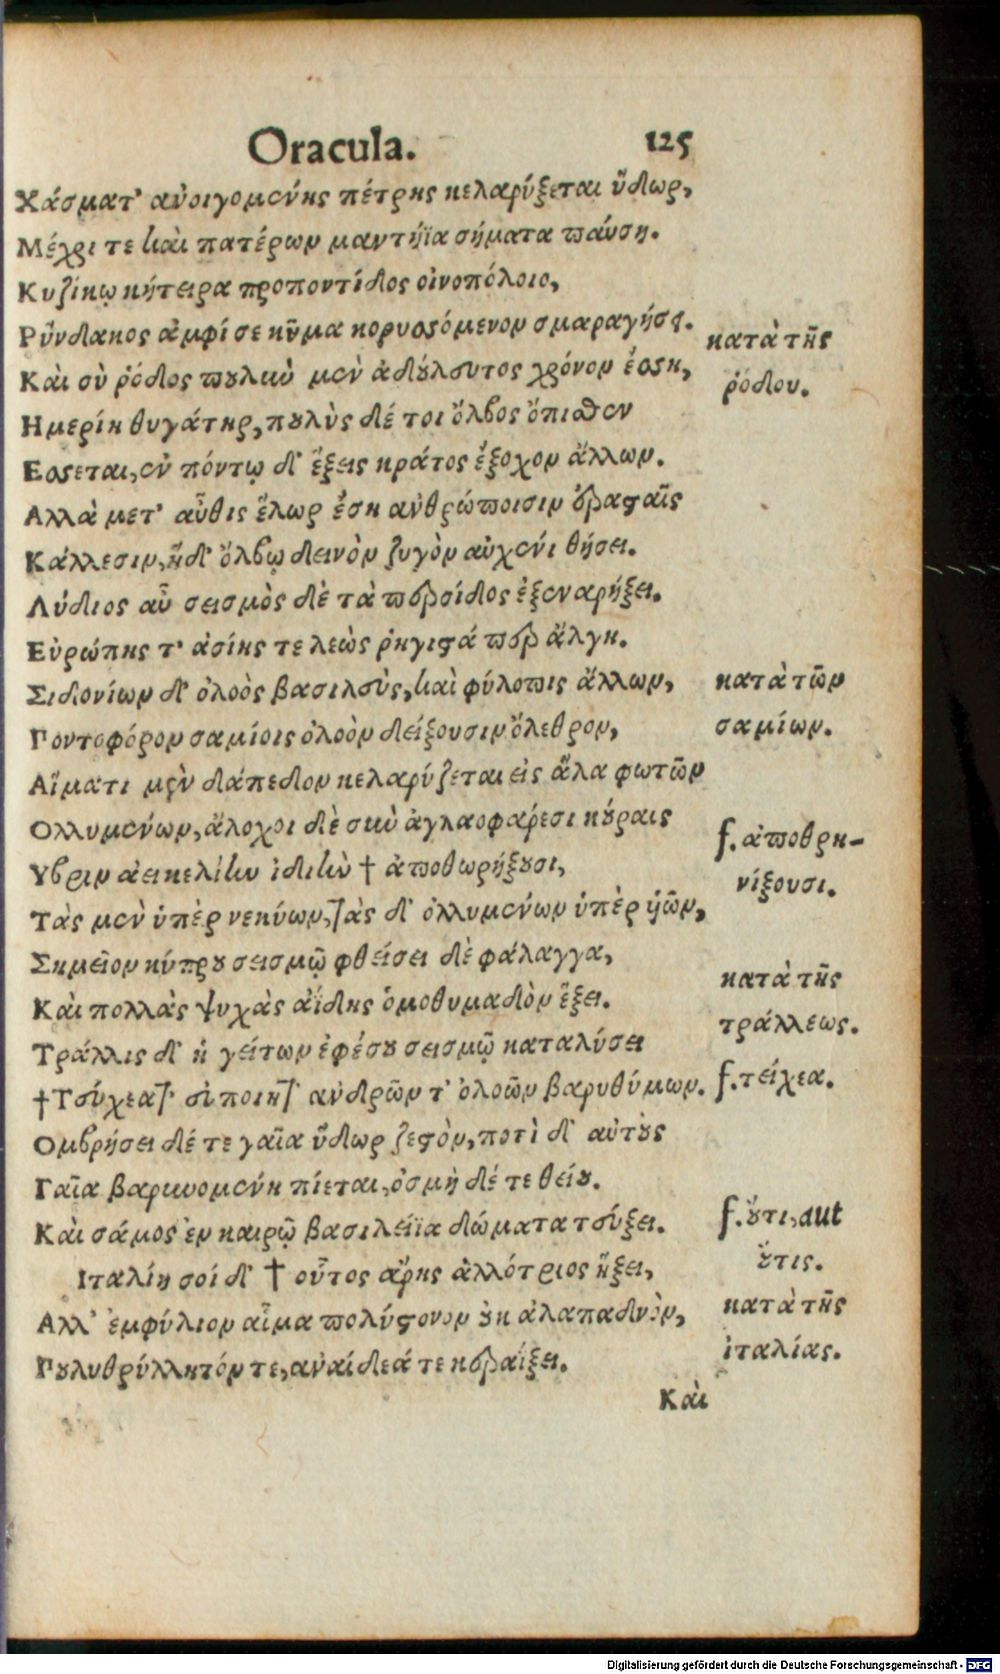 Oracula. 125
Χάσματ' ἀνοιγομένης πέτρης κελαρύξεται ὕδωρ,
Μέχρι τε καὶ πατέρων μαντήϊα σήματα παύσῃ.
Κυζίκῳ κήτειρα προποντίδος οἰνοπόλοιο,
Ρύνδακος ἀμφί σε κῦμα κορυσσόμενον σμαραγήσει.
κατὰ τῆς
Καὶ σὺ ῥόδος πουλὺν μὲν ἀδούλευτος χρόνον ἔσσῃ,
ῥόδου.
Ημερίη θυγάτηρ, πουλὺς δέ τοι ὄλβος ὄπισθεν
Εσσεται, ἐν πόντῳ δ' ἕξεις κράτος ἔξοχον ἄλλων.
Αλλὰ μετ' αὖθις ἕλωρ ἔσῃ ἀνθρώποισιν ἐρασταῖς
Κάλλεσιν, ἠδ' ὄλβῳ δεινὸν ζυγὸν αὐχένι θήσει.
Λύδιος αὖ σεισμὸς δὲ τὰ περσίδος ἐξεναρήξει.
Εὐρώπης τ' ἀσίης τε λεὼς ῥηγιστά περ ἄλγη.
Σιδονίων δ' ὀλοὸς βασιλεὺς, καὶ φύλοπις ἄλλων,
κατὰ τῶν
Ποντοφόρον σαμίοις ὀλοὸν δείξουσιν ὄλεθρον,
σαμίων.
Αἵματι μὲν δάπεδον κελαρύζεται εἰς ἅλα φωτῶν
Ολλυμένων, ἄλοχοι δὲ σὺν ἀγλαοφαρέσι κούραις
f. ἀποθρη-
Υβριν ἀεικελίην ἰδίην † ἀποθωρήξουσι,
νίξουσι.
Τὰς μὲν ὑπὲρ νεκύων, τὰς δ' ὀλλυμένων ὑπὲρ υἱῶν,
Σημεῖον κύπρου σεισμῷ φθείσει δὲ φάλαγγα,
κατὰ τῆς
Καὶ πολλὰς ψυχὰς ἀΐδης ὁμοθυμαδὸν ἕξει.
τράλλεως.
Τράλλις δ' ἡ γείτων ἐφέσου σεισμῷ καταλύσει
†Τεύχεατ' εὐποιητ' ἀνδρῶν τ' ὀλοῶν βαρυθύμων.
f. τείχεα.
Ομβρήσει δέ τε γαῖα ὕδωρ ζεστὸν, ποτὶ δ' αὐτοὺς
Γαῖα βαρυνομένη πίεται, ὀσμὴ δέ τε θείου.
Καὶ σάμος ἐν καιρῷ βασιλήϊα δώματα τεύξει.
f. οὔτι, aut
Ιταλίη σοί δ' † οὗτος ἄρης ἀλλότριος ἥξει,
οὔτις.
Αλλ' ἐμφύλιον αἷμα πολύστονον οὐκ ἀλαπαδνὸν,
κατὰ τῆς
Πουλυθρύλλητόν τε, ἀναίδεά τε κεραΐξει.
ἰταλίας.
Καὶ
Digitalisierung gefördert durch die Deutsche Forschungsgemeinschaft - DFG